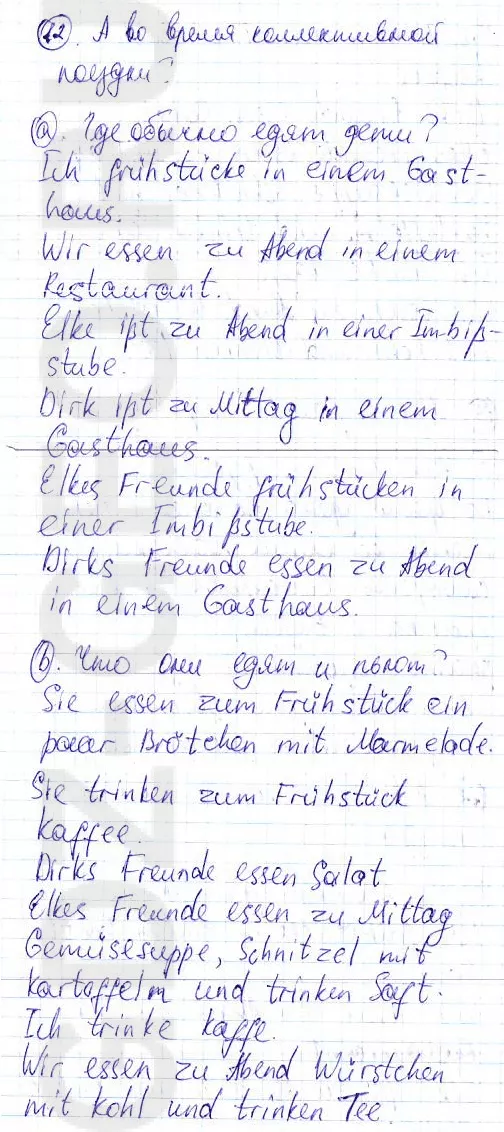 12. А во время коллективной
поездки?
a. Где обычно едят дети?
Ich frühstücke in einem Gast-
haus.
Wir essen zu Abend in einem
Restaurant.
Elke ißt zu Abend in einer Imbiß-
stube.
Dirk ißt zu Mittag in einem
Gasthaus.
Elkes Freunde frühstücken in
einer Imbißstube.
Dirks Freunde essen zu Abend
in einem Gasthaus.
b. Что они едят и пьют?
Sie essen zum Frühstück ein
paar Brötchen mit Marmelade.
Sie trinken zum Frühstück
Kaffee.
Dirks Freunde essen Salat
Elkes Freunde essen zu Mittag
Gemüsesuppe, Schnitzel mit
Kartoffelm und trinken Saft.
Ich trinke Kaffe.
Wir essen zu Abend Würstchen
mit Kohl und trinken Tee.